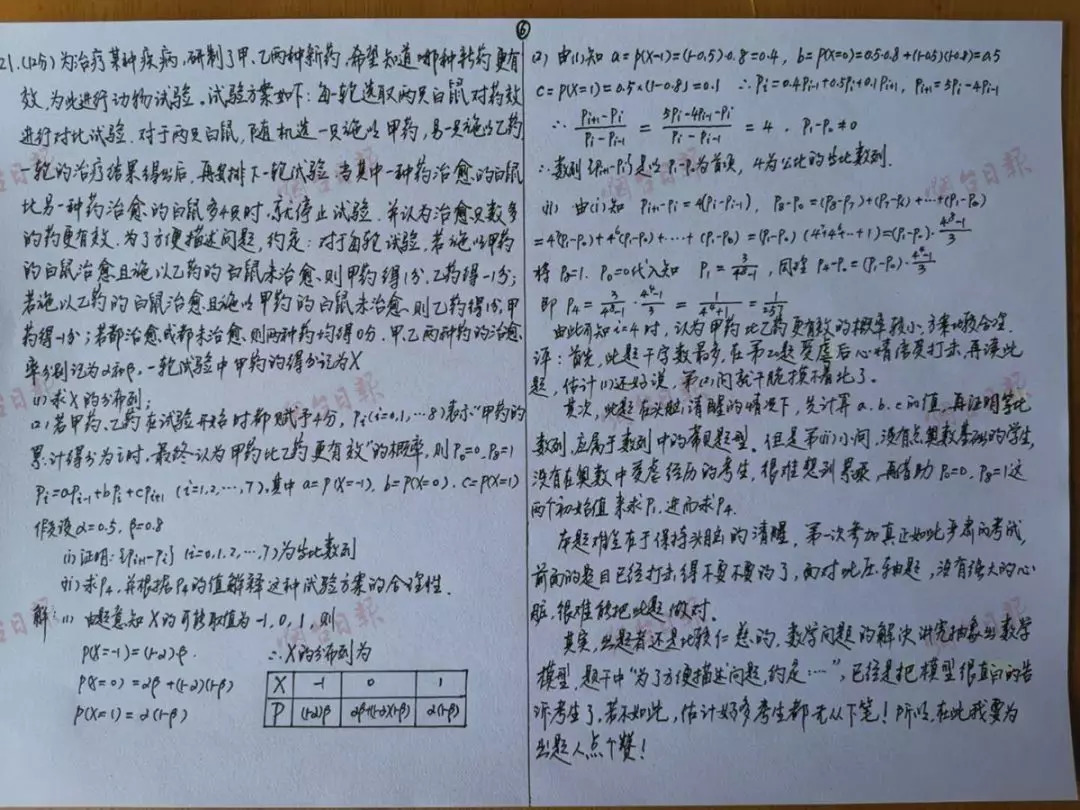 ⑥
21.(12分)为治疗某种疾病,研制了甲、乙两种新药,希望知道哪种新药更有
效,为此进行动物试验。试验方案如下:每一轮选取两只白鼠对药效
进行对比试验.对于两只白鼠,随机选一只施以甲药,另一只施以乙药
一轮的治疗结果得出后,再安排下一轮试验.当其中一种药治愈的白鼠
比另一种药治愈的白鼠多4只时,就停止试验,并认为治愈只数多
的药更有效.为了方便描述问题,约定:对于每轮试验,若施以甲药
的白鼠治愈且施以乙药的白鼠未治愈,则甲药得1分,乙药得-1分;
若施以乙药的白鼠治愈且施以甲药的白鼠未治愈,则乙药得1分,甲
药得-1分;若都治愈或都未治愈,则两种药均得0分.甲乙两种药的治愈
率分别记为α和β,一轮试验中甲药的得分记为X
(1)求X的分布列;
(2)若甲药、乙药在试验开始时都赋予4分,Pi(i=0,1,…8)表示"甲药的
累计得分为i时,最终认为甲药比乙药更有效"的概率,则P0=0,P8=1
Pi=aPi-1+bPi+cPi+1 (i=1,2,…,7),其中 a=P(X=-1), b=P(X=0), c=P(X=1)
假设α=0.5, β=0.8
(i)证明:{Pi+1-Pi} (i=0,1,2,…,7)为等比数列
(ii)求P4,并根据P4的值解释这种试验方案的合理性.
解:(1) 由题意知X的可能取值为-1,0,1,则
P(X=-1)=(1-α)β. ∴X的分布列为
P(X=0)=αβ+(1-α)(1-β)
P(X=1)=α(1-β)
X -1 0 1
P (1-α)β αβ+(1-α)(1-β) α(1-β)
(2) 由(1)知 a=P(X=-1)=(1-0.5)·0.8=0.4, b=P(X=0)=0.5·0.8+(1-0.5)(1-0.8)=0.5
C=P(X=1)=0.5×(1-0.8)=0.1 ∴Pi=0.4Pi-1+0.5Pi+0.1Pi+1, Pi+1=5Pi-4Pi-1
∴ (Pi+1-Pi)/(Pi-Pi-1) = (5Pi-4Pi-1-Pi)/(Pi-Pi-1) = 4, P1-P0≠0
∴数列{Pi+1-Pi}是以P1-P0为首项,4为公比的等比数列.
(ii) 由(i)知 Pi+1-Pi=4(Pi-Pi-1), P8-P0=(P8-P7)+(P7-P6)+…+(P1-P0)
=4^7(P1-P0)+4^6(P1-P0)+……+(P1-P0)=(P1-P0)(4^7+4^6+…+1)=(P1-P0)·(4^8-1)/3
将P8=1, P0=0代入知 P1=3/(4^8-1),同理 P4-P0=(P1-P0)·(4^4-1)/3
即 P4=3/(4^8-1)·(4^4-1)/3=1/(4^4+1)=1/257
由此可知i=4时,认为甲药比乙药更有效的概率较小,方案比较合理.
评:首先,此题干字数最多,在第20题受虐后心情倍受打击,再读此
题,估计(1)还好说,第(2)问就干脆摸不着北了。
其次,此题在头脑清醒的情况下,先计算a.b.c的值,再证明等比
数列,应属于数列中的常见题型.但是第(ii)小问,没有点奥数基础的学生,
没有在奥数中受虐经历的考生,很难想到累乘,再借助P0=0,P8=1这
两个初始值来求P1,进而求P4.
本题难在在于保持头脑的清醒,第一次参加真正如此严肃的考试,
前面的题目已经打击得不要不要的了,面对此压轴题,没有强大的心
脏,很难能把此题做对.
其实,出题者还是比较仁慈的,数学问题的解决讲究抽象出数学
模型,题干中"为了方便描述问题,约定……",已经是把模型很直白的告
诉考生了,若不如此,估计好多考生都无从下笔!所以,在此我要为
出题人点个赞!
烟台日报
烟台日报